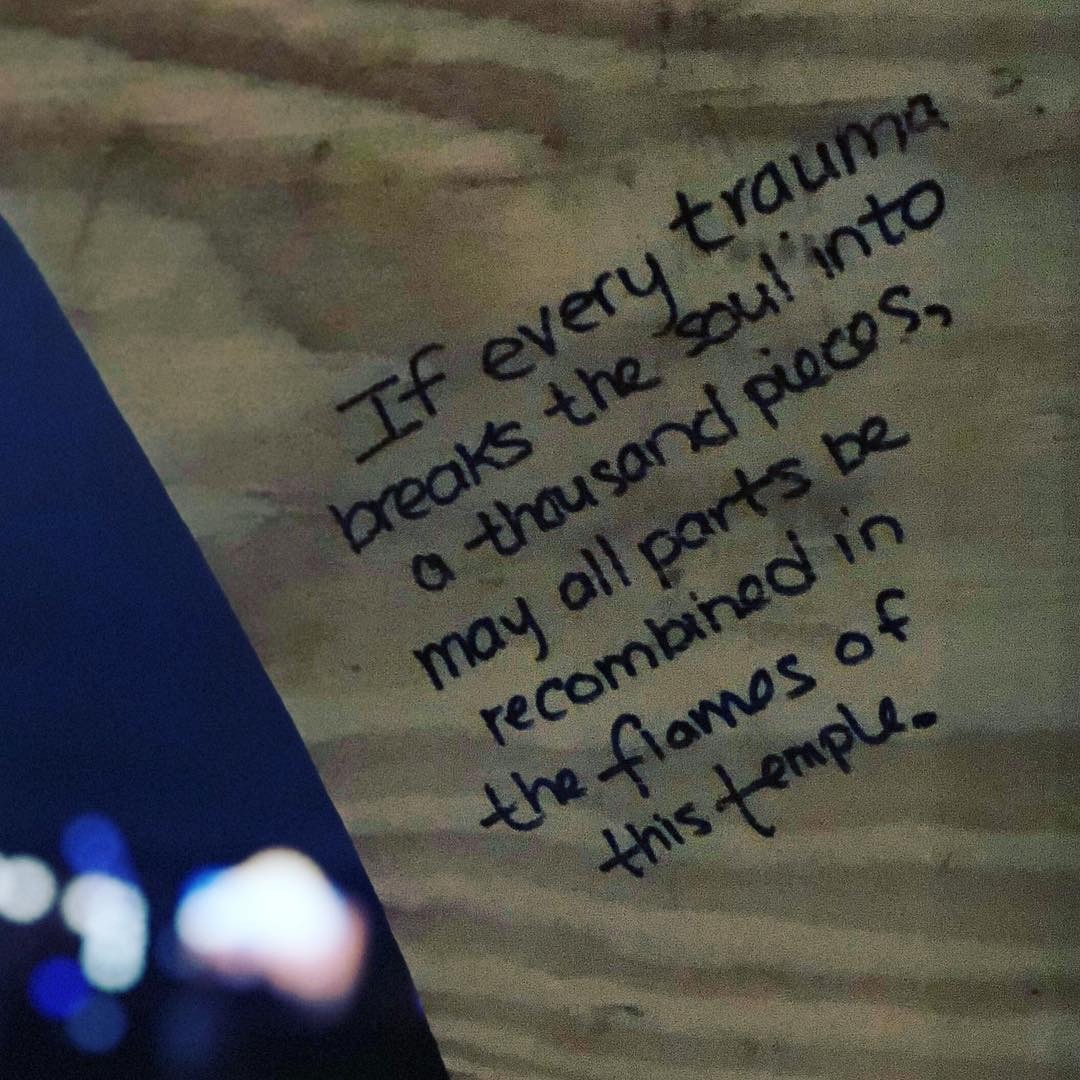 If every trauma
breaks the soul into
a thousand pieces,
may all parts be
recombined in
the flames of
this temple.